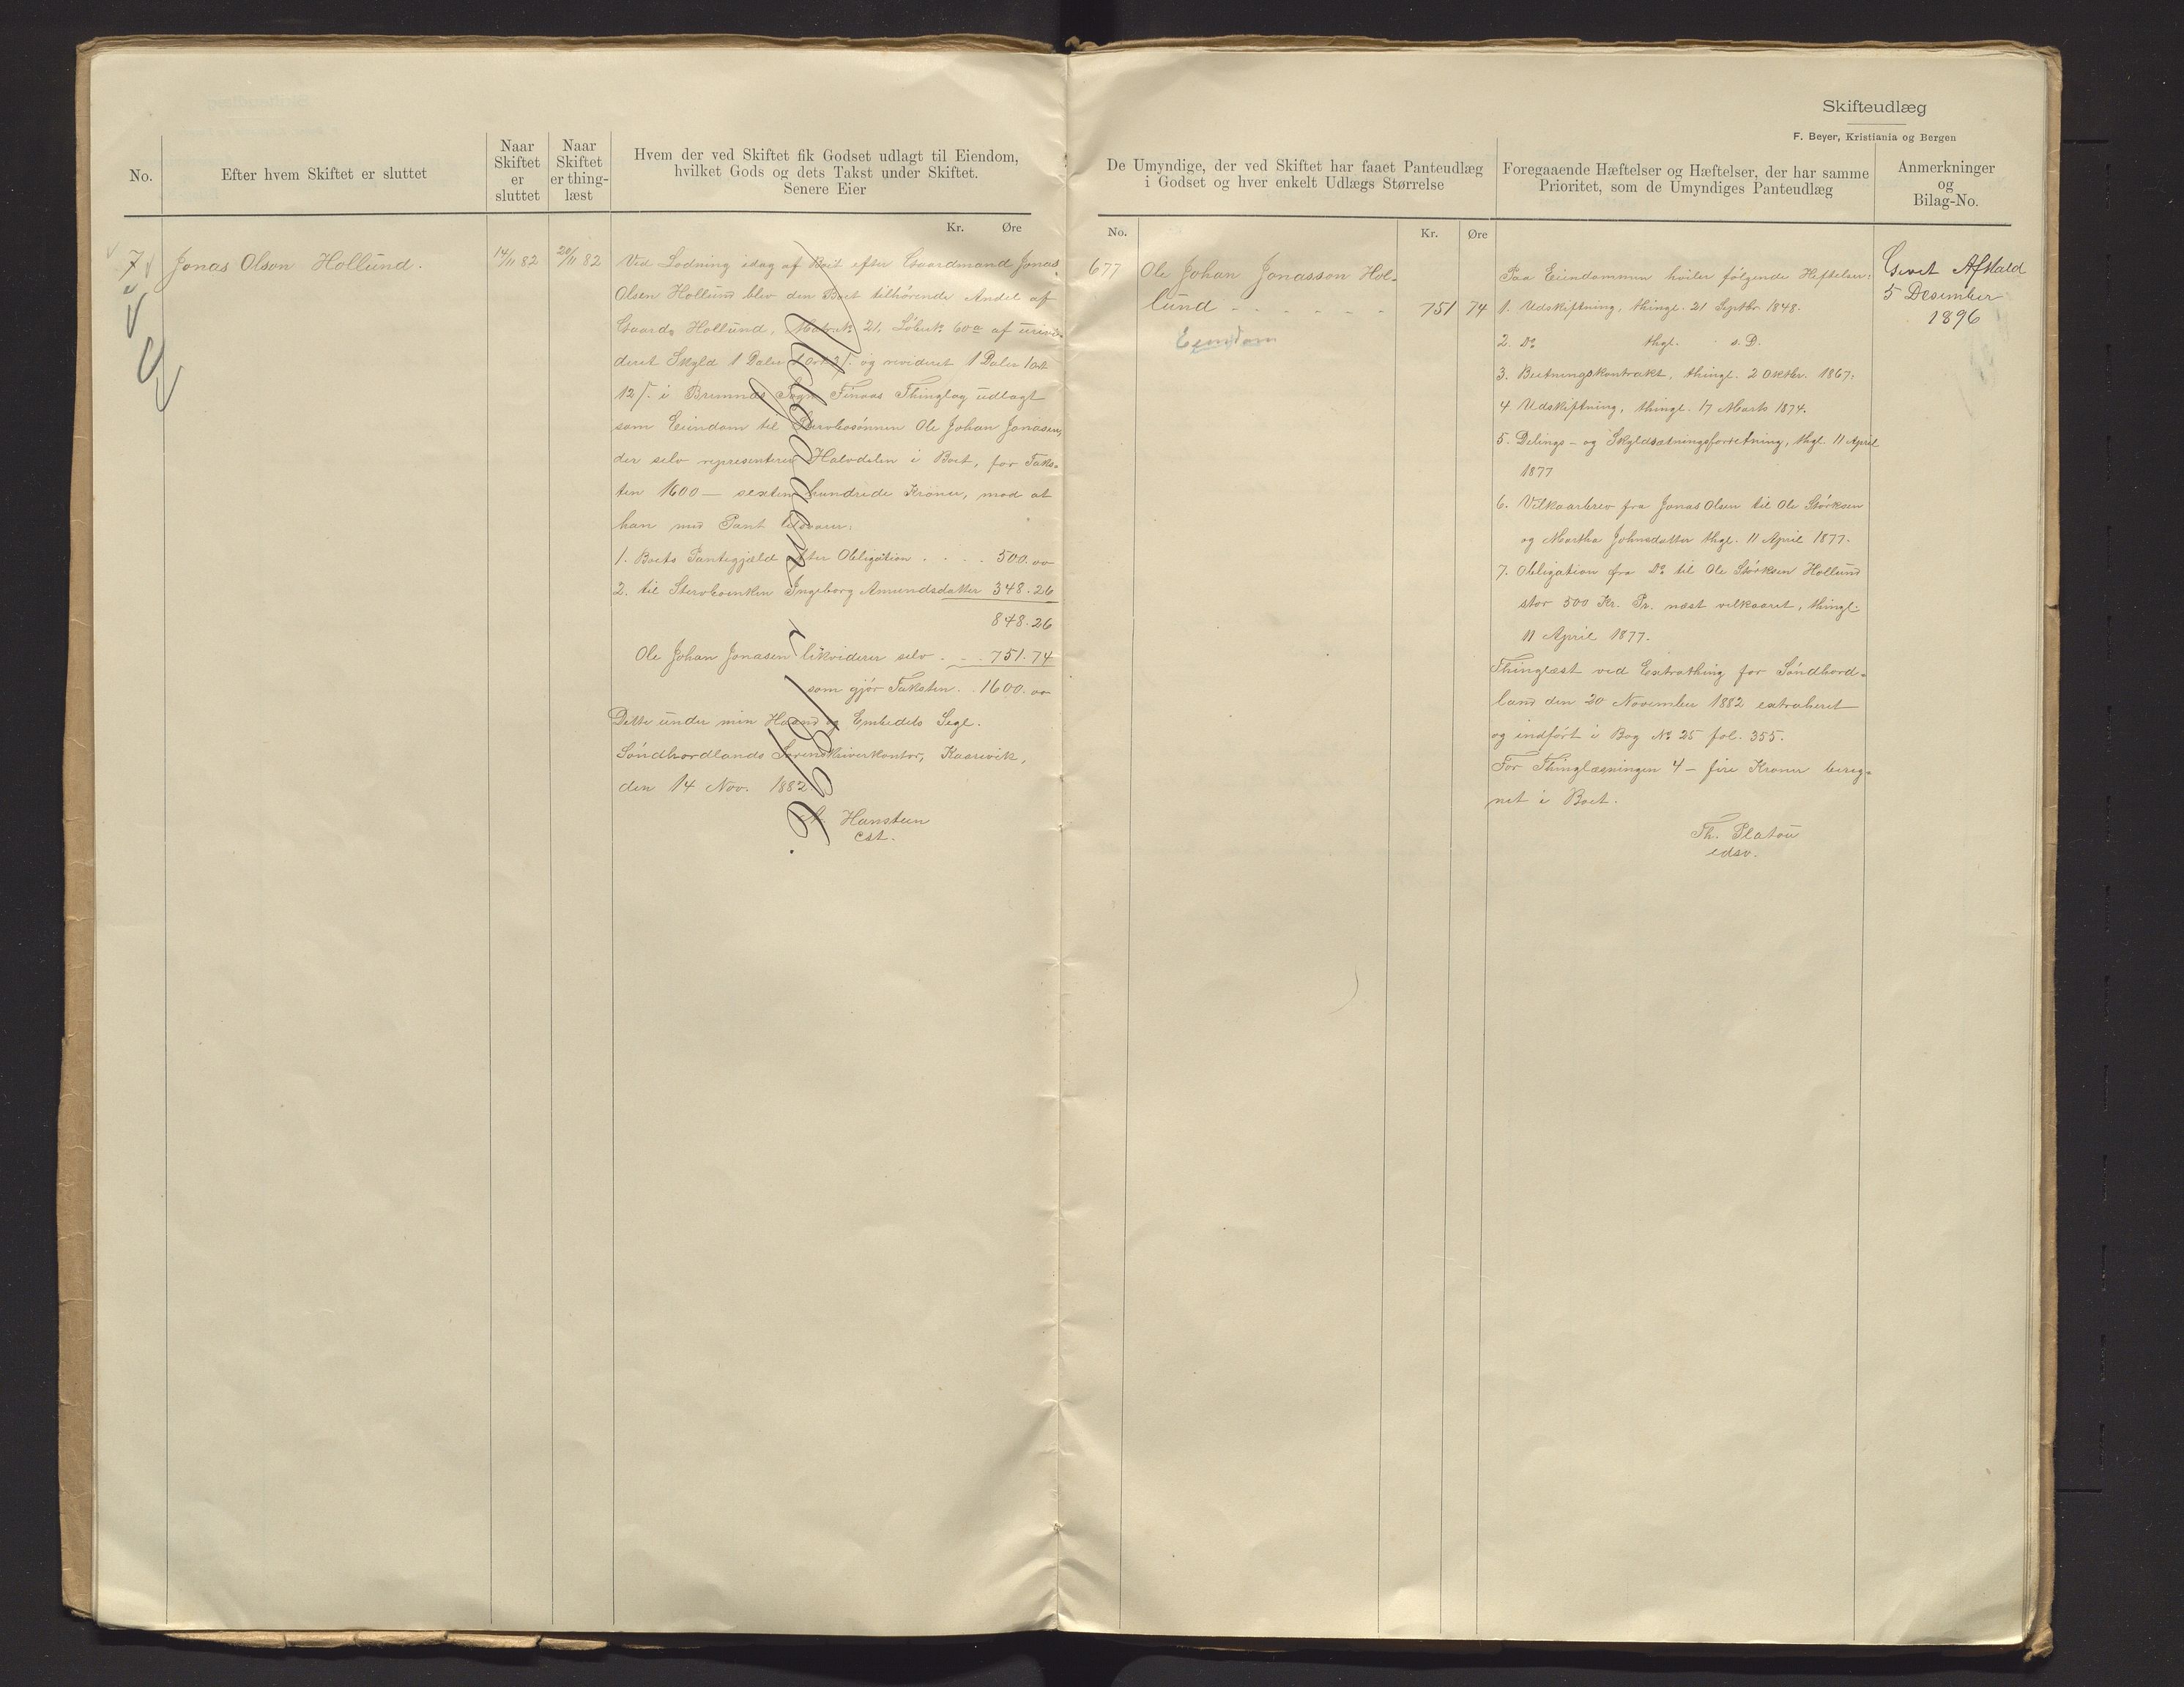 Skifteudlæg
F. Beyer, Kristiania og Bergen
No.
Efter hvem Skiftet er sluttet
Naar
Skiftet
er
sluttet
Naar
Skiftet
er thing-
læst
Hvem der ved Skiftet fik Godset udlagt til Eiendom,
hvilket Gods og dets Takst under Skiftet.
Senere Eier
Kr. Øre
7 Jonas Olson Hollund.
14/11 82
20/11 82
Ved Lodning idag af Boet efter Gaardmand Jonas
Olsen Hollund blev den Boet tilhørende Andel af
Gaarden Hollund, Matr. № 21, Løbe № 60a af urevi-
deret Skyld 1 Daler og revideret 1 Daler 1 Ort
12 ß. i Bremnæs Sogn Finaas Thinglag udlagt
som Eiendom til Stervbosønnen Ole Johan Jonasen,
der selv representerer Halvdelen i Boet, for Taks-
ten 1600 — sexten hundrede Kroner, mod at
han med Pant tilsvarer:
1. Boets Pantegjæld efter Obligation . . . . 500.00
2. til Stervboenken Ingeborg Amundsdatter 348.26
848.26
Ole Johan Jonasen likviderer selv . . . 751.74
som gjør Taksten . . 1600.00
Dette under min Haand og Embedets Segl.
Søndhordlands Sorenskriverkontor, Kaarevik,
den 14 Nov. 1882
Hansteen
cst.
Udgaaen
1896.
De Umyndige, der ved Skiftet har faaet Panteudlæg
i Godset og hver enkelt Udlægs Størrelse
No.
Kr. Øre
677 Ole Johan Jonasson Hol-
lund - - - - - - 751 74
Eiendom
Foregaaende Hæftelser og Hæftelser, der har samme
Prioritet, som de Umyndiges Panteudlæg
Paa Eiendommen hviler følgende Heftelser:
1. Udskiftning, thingl. 21 Septbr. 1848.
2. Do thgl. s. D.
3. Beitningskontrakt, thingl. 2 Oktbr. 1867.
4. Udskiftning, thingl. 17 Marts 1874.
5. Delings- og Skyldsætningsforretning, thgl. 11 April
1877
6. Vilkaarbrev fra Jonas Olsen til Ole Størksen
og Martha Johnsdatter thgl. 11 April 1877.
7. Obligation fra Do til Ole Størksen Hollund
stor 500 Kr. Pr. næst velkaaret, thingl.
11 April 1877.
Thinglæst ved Extrathing for Søndhord-
land den 20 November 1882 extraheret
og indført i Bog No 25 fol. 355.
For Thinglæsningen 4 — fire Kroner bereg-
net i Boet.
Th. Platou
edsv.
Anmerkninger
og
Bilag-No.
Givet Afkald
5 Desember
1896